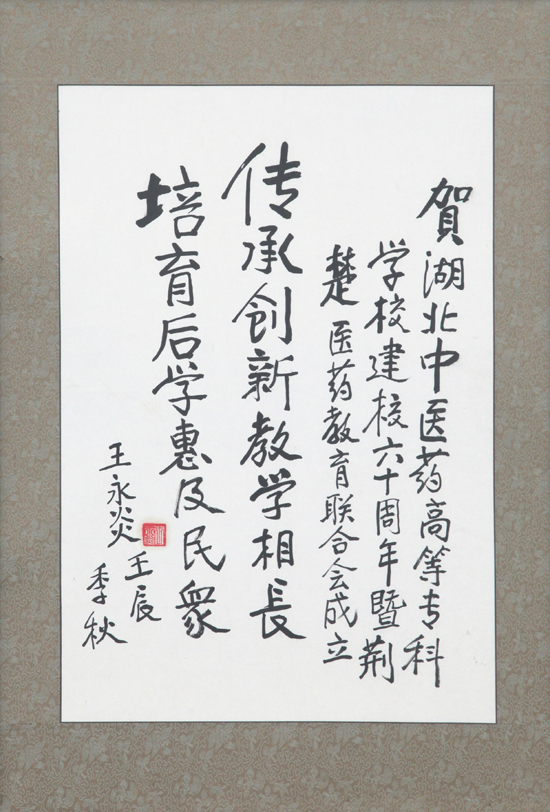 賀湖北中医药高等专科
学校建校六十周年暨荆
楚医药教育联合会成立
传承创新教学相長
培育后学惠及民衆
壬辰
季秋
王永炎